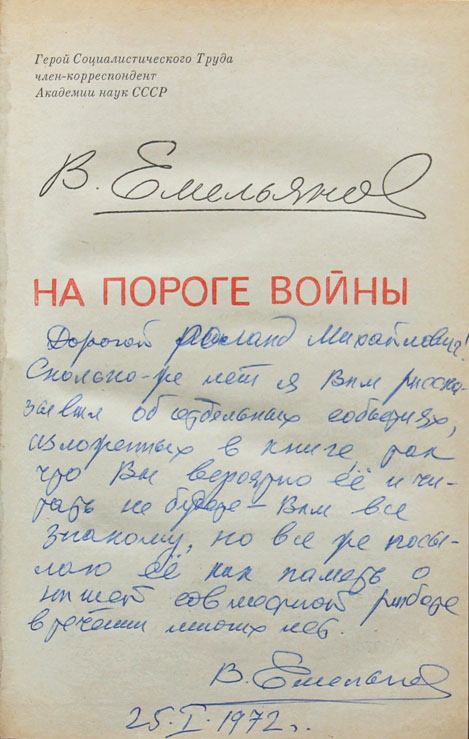 Герой Социалистического Труда
член-корреспондент
Академии наук СССР
В. Емельянов
НА ПОРОГЕ ВОЙНЫ
Дорогой Роланд Михайлович!
Сколько-же лет я Вам расска-
зывал об отдельных событиях,
изложенных в книге так
что Вы вероятно её и чи-
тать не будете – Вам все
знакомо, но все же посы-
лаю её как память о
нашей совместной работе
в течении многих лет.
В. Емельянов
25.I.1972 г.